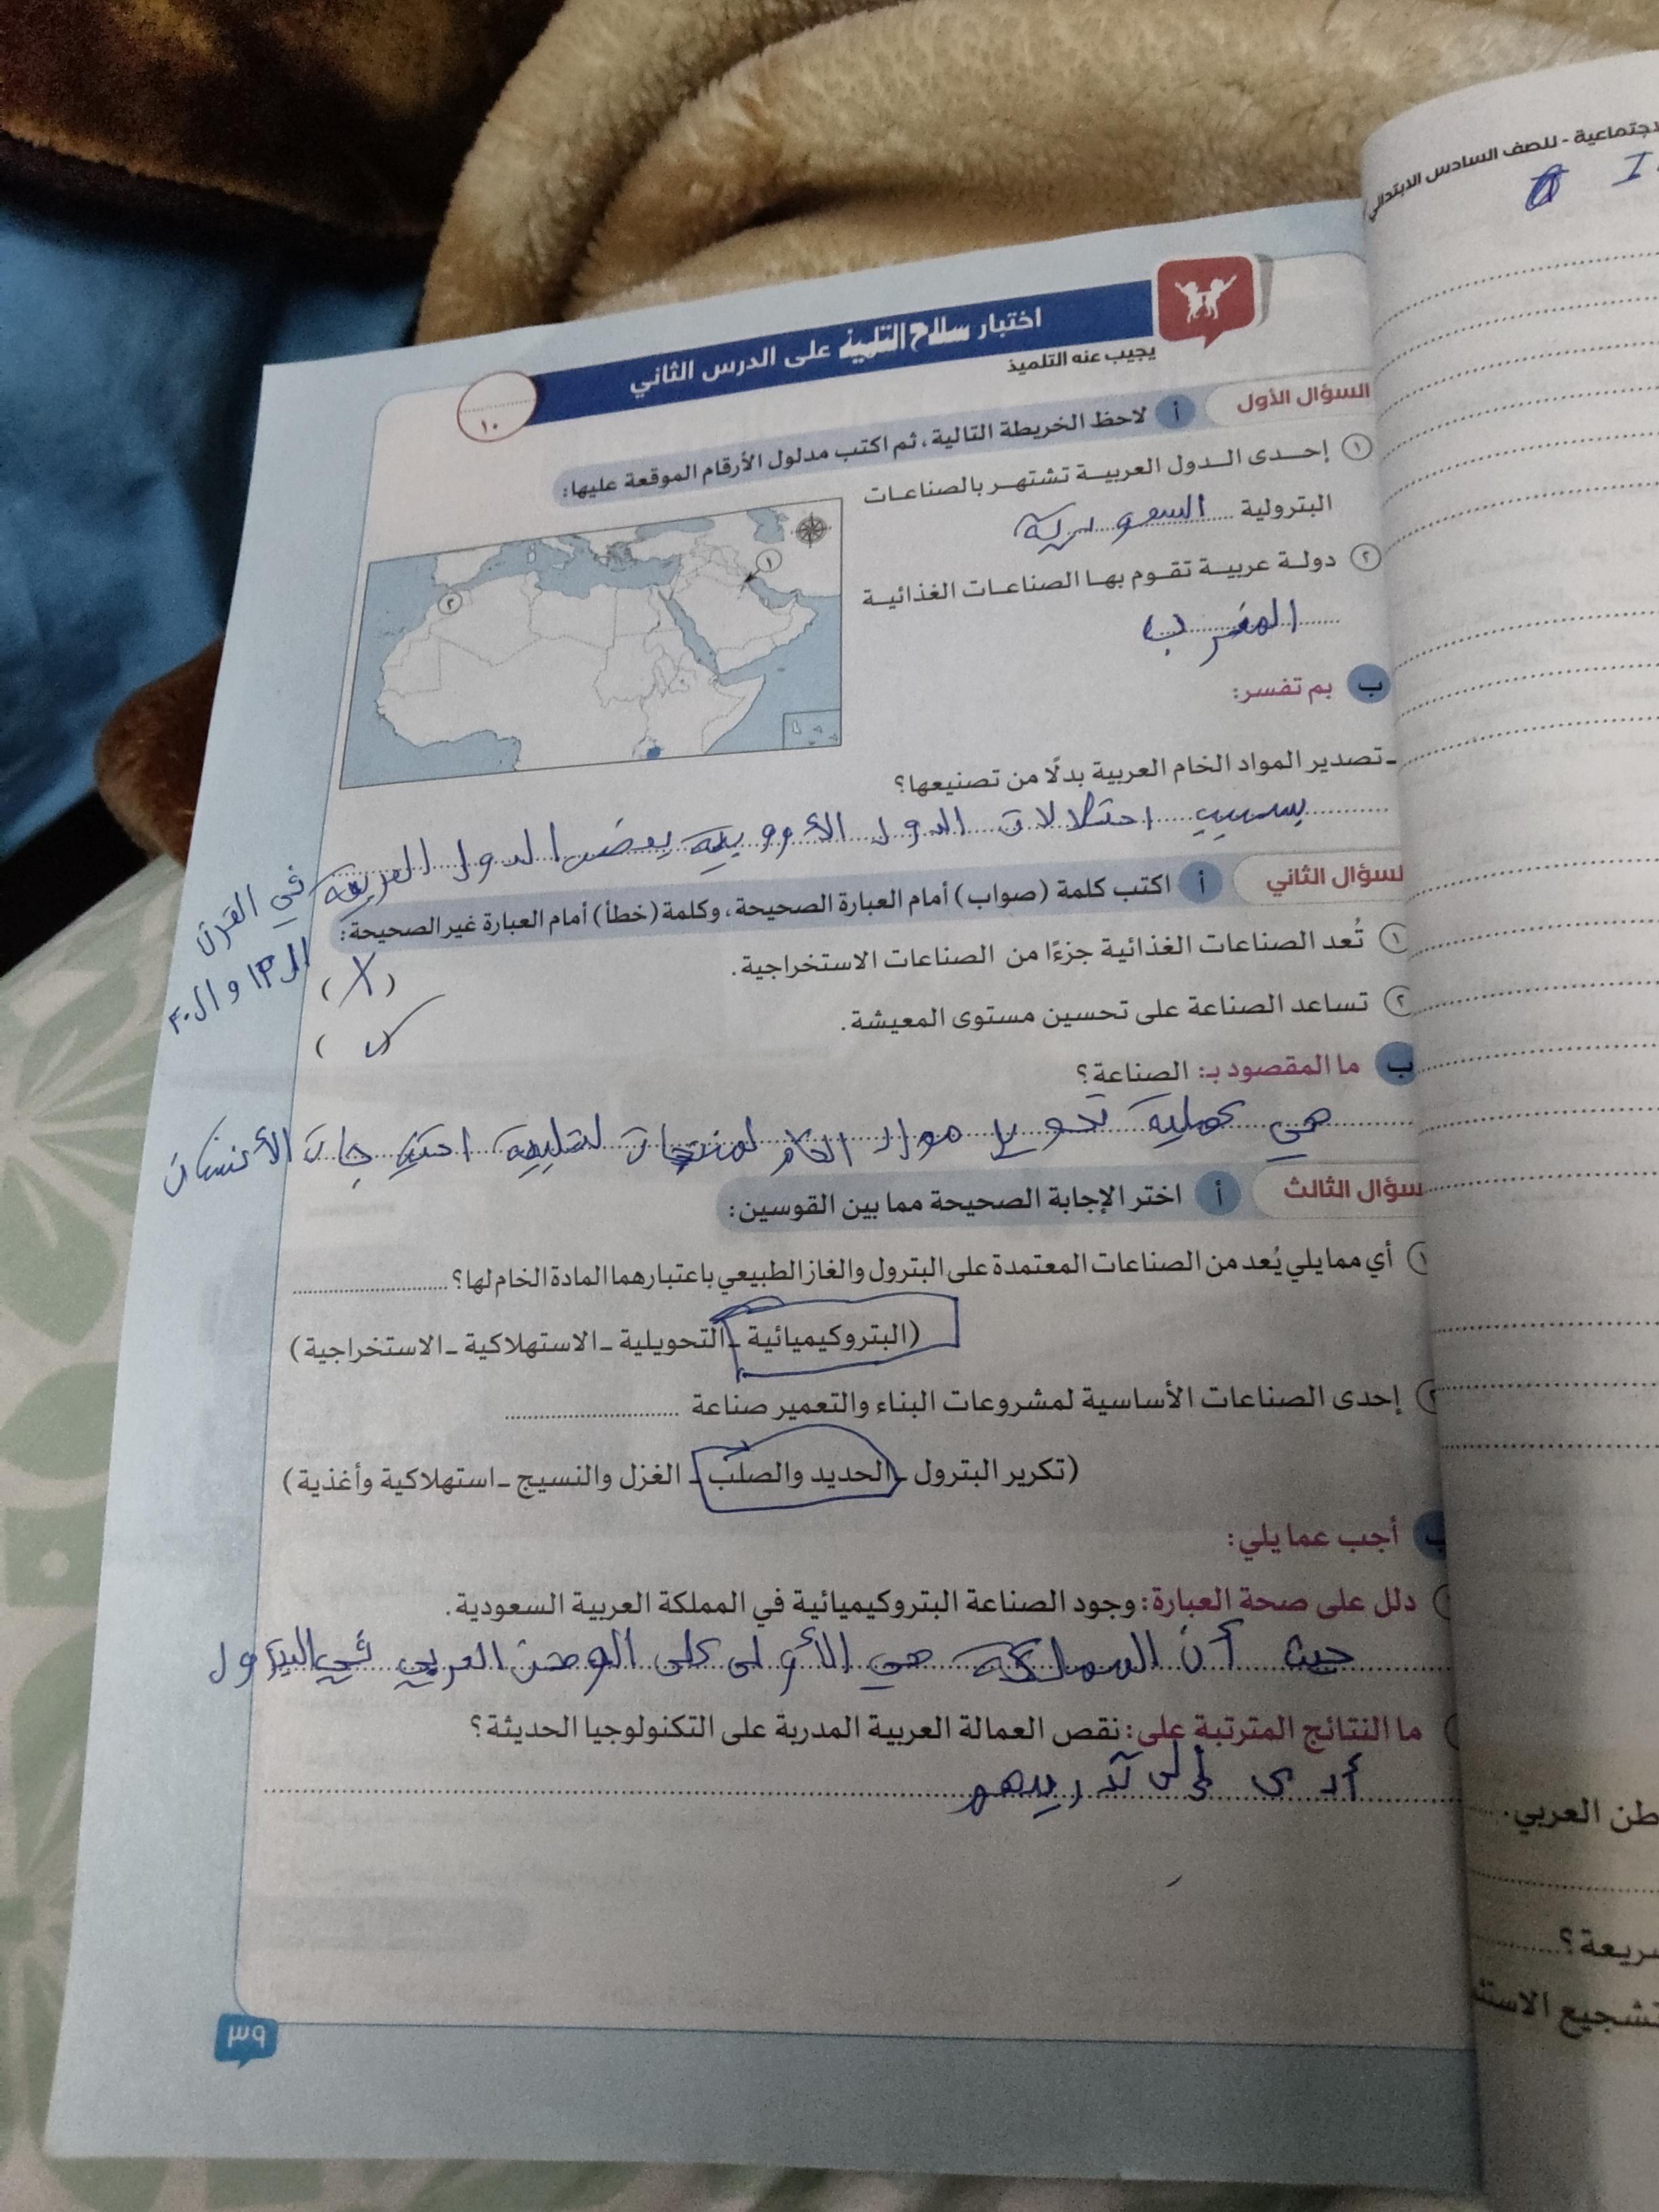 لاجتماعية - للصف السادس الابتدائي
اختبار سلاح التلميذ على الدرس الثاني
١٠
يجيب عنه التلميذ
السؤال الأول
أ لاحظ الخريطة التالية، ثم اكتب مدلول الأرقام الموقعة عليها:
١ إحدى الدول العربية تشتهر بالصناعات
البترولية السعودية
٢ دولة عربية تقوم بها الصناعات الغذائية
المغرب
١
٢
ب بم تفسر:
- تصدير المواد الخام العربية بدلًا من تصنيعها؟
بسبب احتلالات الدول الأوروبية بعض الدول العربية في القرن
ال ١٩ و ال ٢٠
لسؤال الثاني
أ اكتب كلمة (صواب) أمام العبارة الصحيحة، وكلمة (خطأ) أمام العبارة غير الصحيحة:
١ تُعد الصناعات الغذائية جزءًا من الصناعات الاستخراجية. (X)
٢ تساعد الصناعة على تحسين مستوى المعيشة. (✓)
ب ما المقصود بـ: الصناعة؟
هي عملية تحويل مواد الخام لمنتجات لتلبية احتياجات الأنسان
سؤال الثالث
أ اختر الإجابة الصحيحة مما بين القوسين:
١ أي مما يلي يُعد من الصناعات المعتمدة على البترول والغاز الطبيعي باعتبارهما المادة الخام لها؟
(البتروكيميائية - التحويلية - الاستهلاكية - الاستخراجية)
٢ إحدى الصناعات الأساسية لمشروعات البناء والتعمير صناعة
(تكرير البترول - الحديد والصلب - الغزل والنسيج - استهلاكية وأغذية)
ب أجب عما يلي:
دلل على صحة العبارة: وجود الصناعة البتروكيميائية في المملكة العربية السعودية.
حيث أن المملكة هي الأولى على الوطن العربي في البترول
ما النتائج المترتبة على: نقص العمالة العربية المدربة على التكنولوجيا الحديثة؟
أدى إلى تدريبهم
٣٩
طن العربي.
ريعة؟
تشجيع الاستث